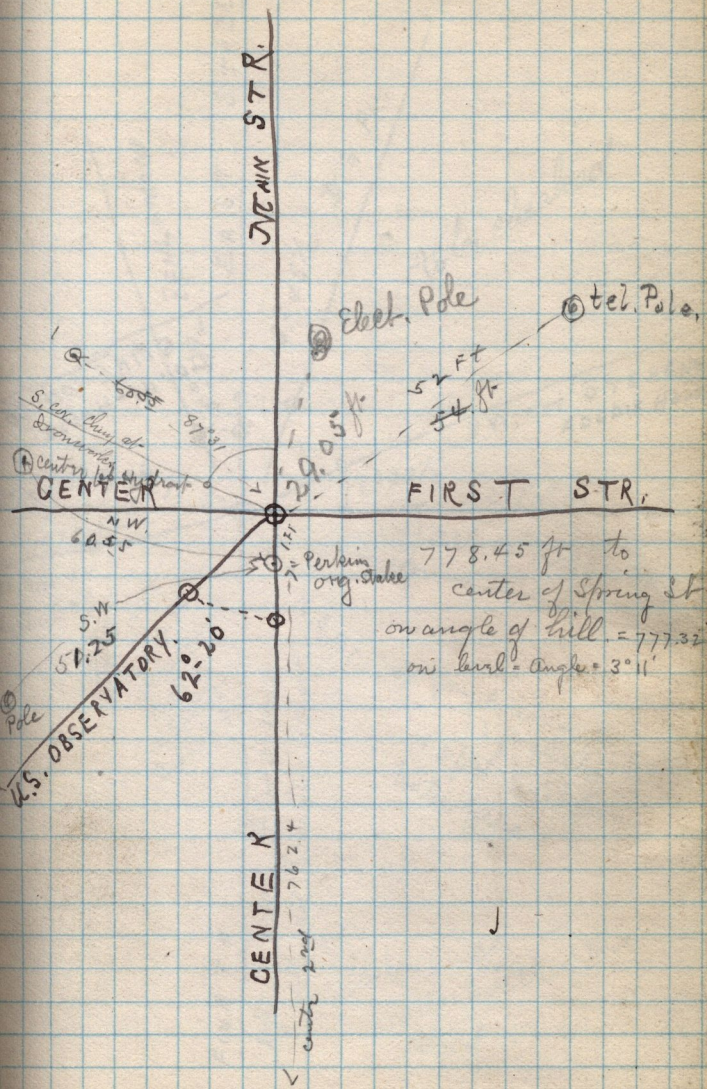 MAIN STR.
Elect. Pole
tel. Pole.
52 Ft
54 ft
29.05 ft
60.55
87°31
S. cor. chimp at
Ironworks
center fire hydrant
CENTER
FIRST STR.
N.W.
60.55
Perkins
org. stake
778.45 ft to
center of Spring St
on angle of hill = 777.32
on level = Angle = 3° 11'
S.W.
51.25
Pole
62°-20'
U.S. OBSERVATORY.
CENTER
762.4
centr 2nd